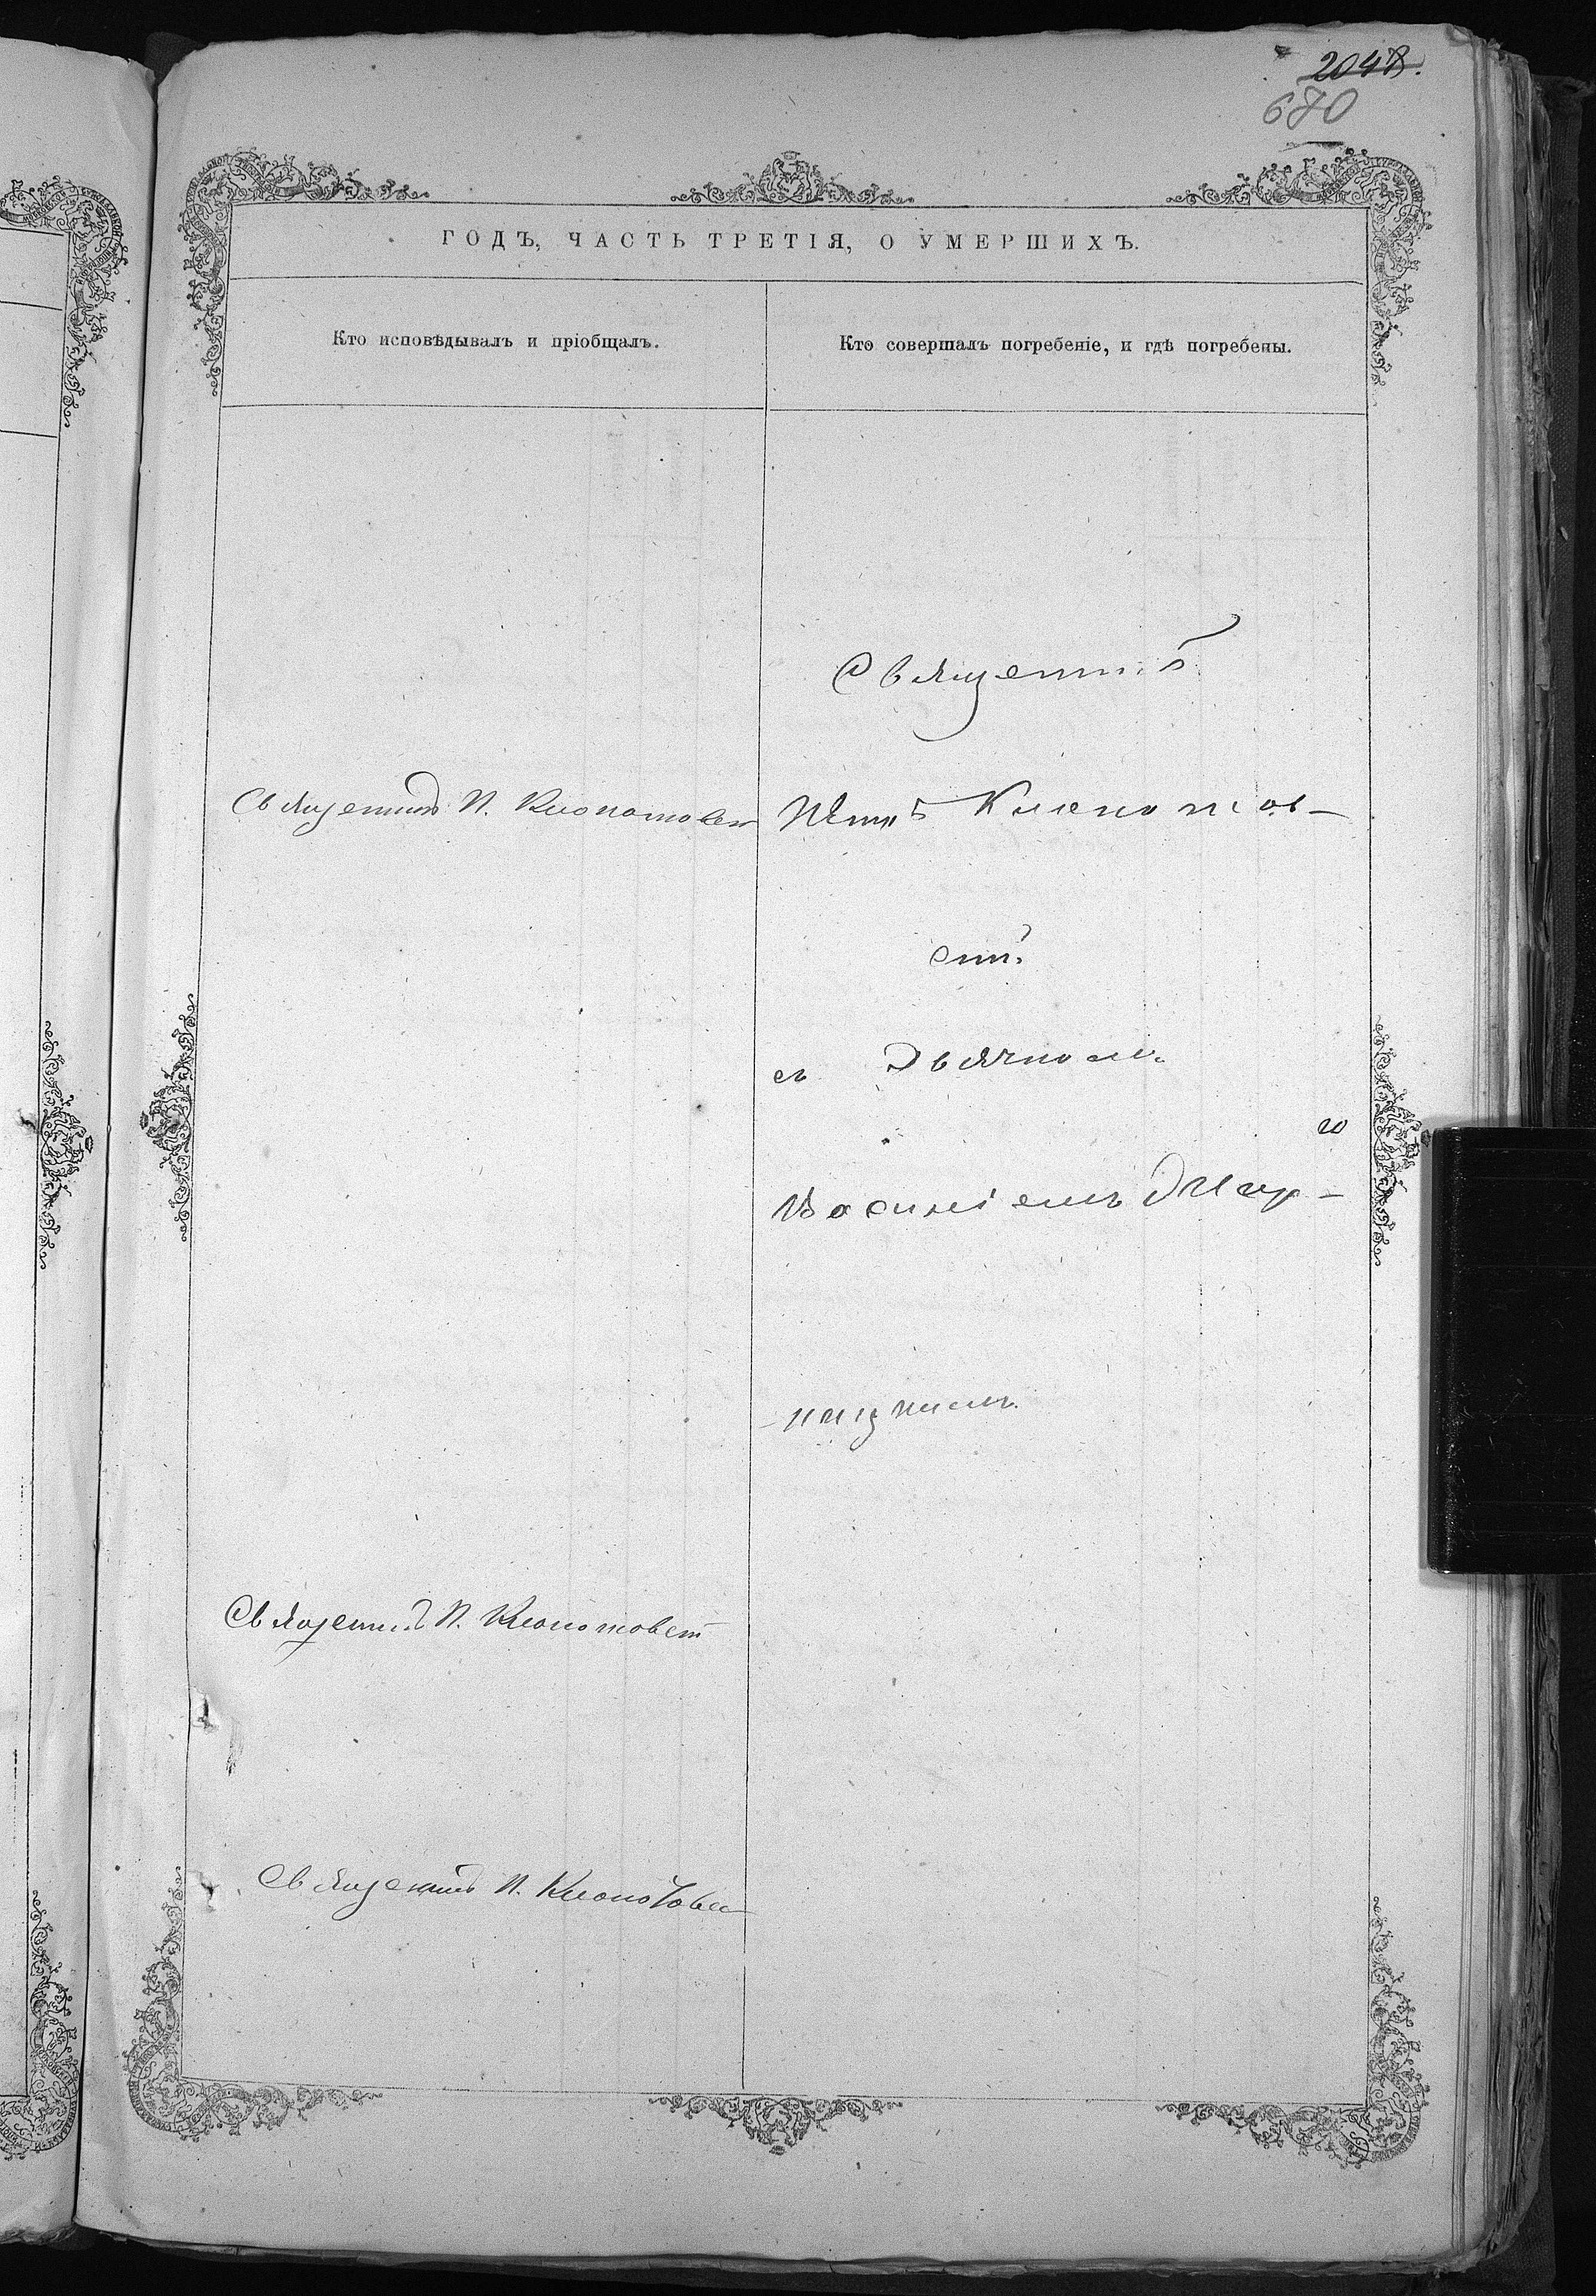 2048.
680
ГОДЪ, ЧАСТЬ ТРЕТІЯ, О УМЕРШИХЪ.
Кто исповѣдывалъ и пріобщалъ.
Кто совершалъ погребеніе, и гдѣ погребены.
Священникъ
Священникъ П. Клопотовск
Петръ Клопотов-
скій
съ Дьячком
Василіемъ
Священникъ П. Клопотовскій
Священникъ П. Клопотовск